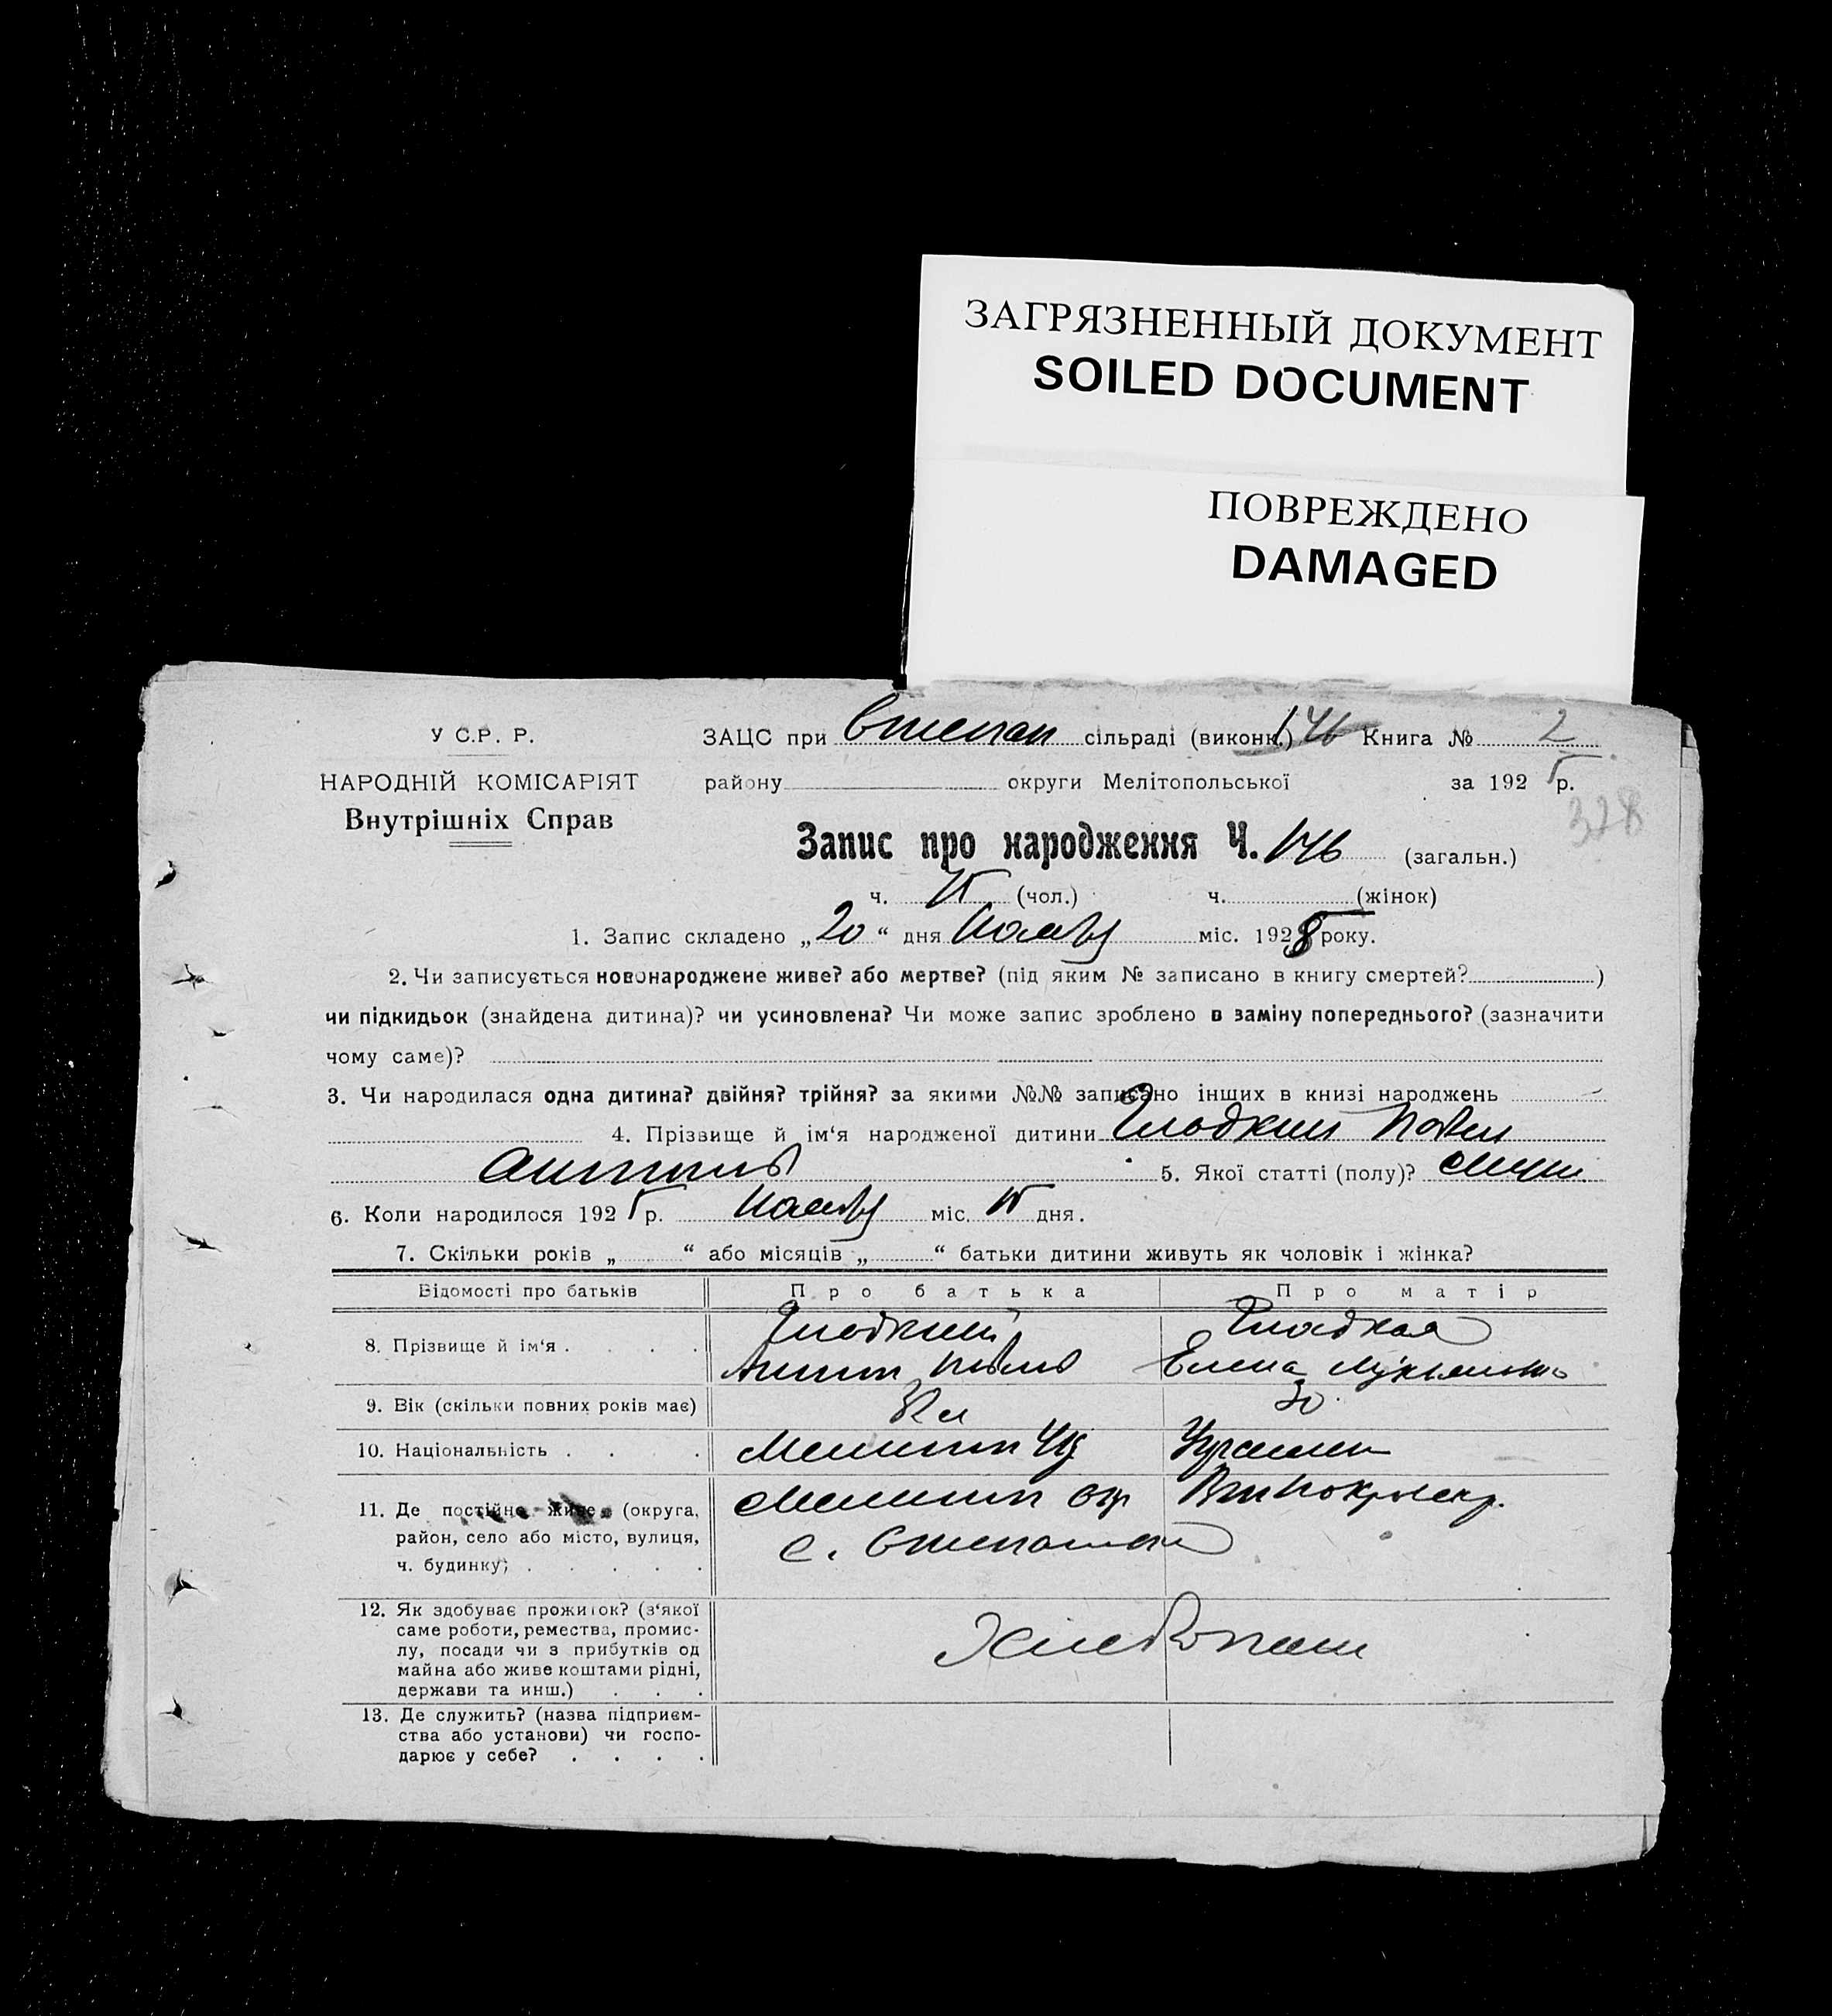 ЗАГРЯЗНЕННЫЙ ДОКУМЕНТ
SOILED DOCUMENT
ПОВРЕЖДЕНО
DAMAGED
У С.Р. Р.
НАРОДНІЙ КОМІСАРІЯТ
Внутрішніх Справ
ЗАЦС при Степан сільраді (виконк.) 146 Книга № 2
району округи Мелітопольської за 1925 р.
328
Запис про народження Ч. 146 (загальн.)
ч. 75 (чол.) ч. (жінок)
1. Запис складено „20“ дня міс. 1925 року.
2. Чи записується новонароджене живе? або мертве? (під яким № записано в книгу смертей? )
чи підкидьок (знайдена дитина)? чи усиновлена? Чи може запис зроблено в заміну попереднього? (зазначити
чому саме)?
3. Чи народилася одна дитина? двійня? трійня? за якими №№ записано інших в книзі народжень
4. Прізвище й ім‘я народженої дитини Гладкий Павел
5. Якої статті (полу)?
6. Коли народилося 1925 р. міс. 15 дня.
7. Скільки років „ “ або місяців „ “ батьки дитини живуть як чоловік і жінка?
Відомості про батьків Про батька Про матір
8. Прізвище й ім‘я . . . . . Гладкий Гладкая
Антип Елена
9. Вік (скільки повних років має) 30
10. Національність . . .
11. Де постійно живе (округа,
район, село або місто, вулиця,
ч. будинку; . . . . .
Мелитоп окр
с. Степановка
12. Як здобуває прожиток? (з‘якої
саме роботи, ремества, промис-
лу, посади чи з прибутків од
майна або живе коштами рідні,
держави та инш.) . . .
Хлебопаш
13. Де служить? (назва підприєм-
ства або установи) чи госпо-
дарює у себе? . . . .